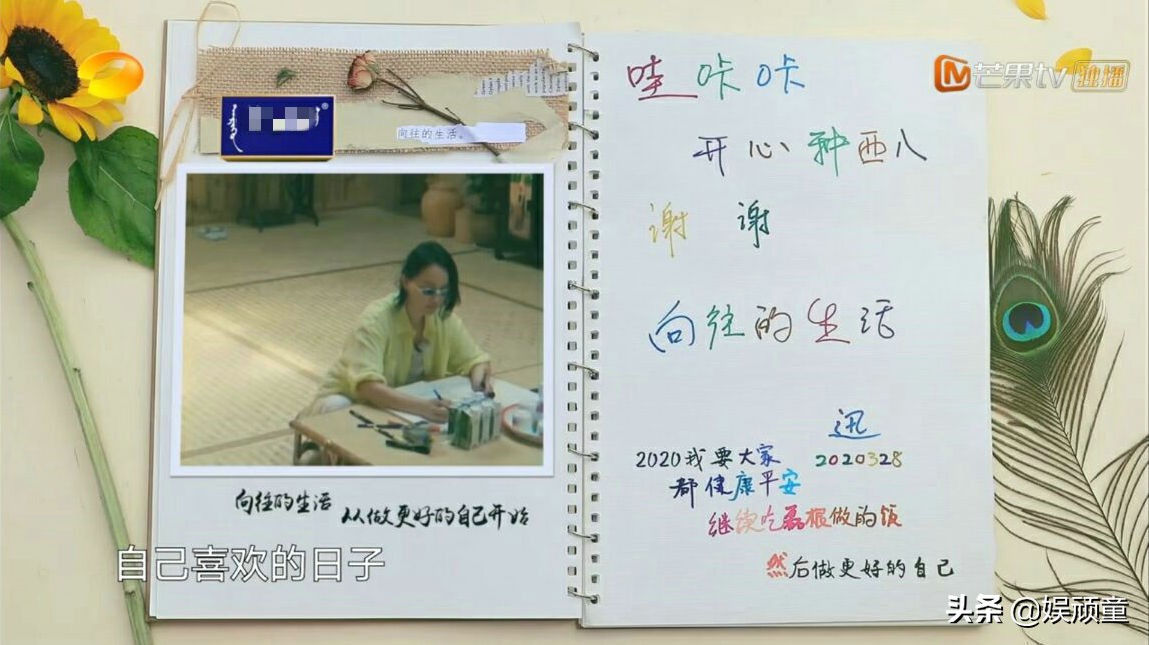 向往的生活。
向往的生活
从做更好的自己开始
自己喜欢的日子
芒果tv 独播
哇咔咔
开心种西八
谢 谢
向往的生活
迅
2020328
2020我要大家
都健康平安
继续吃磊根做的饭
然后做更好的自己
头条 @娱顽童